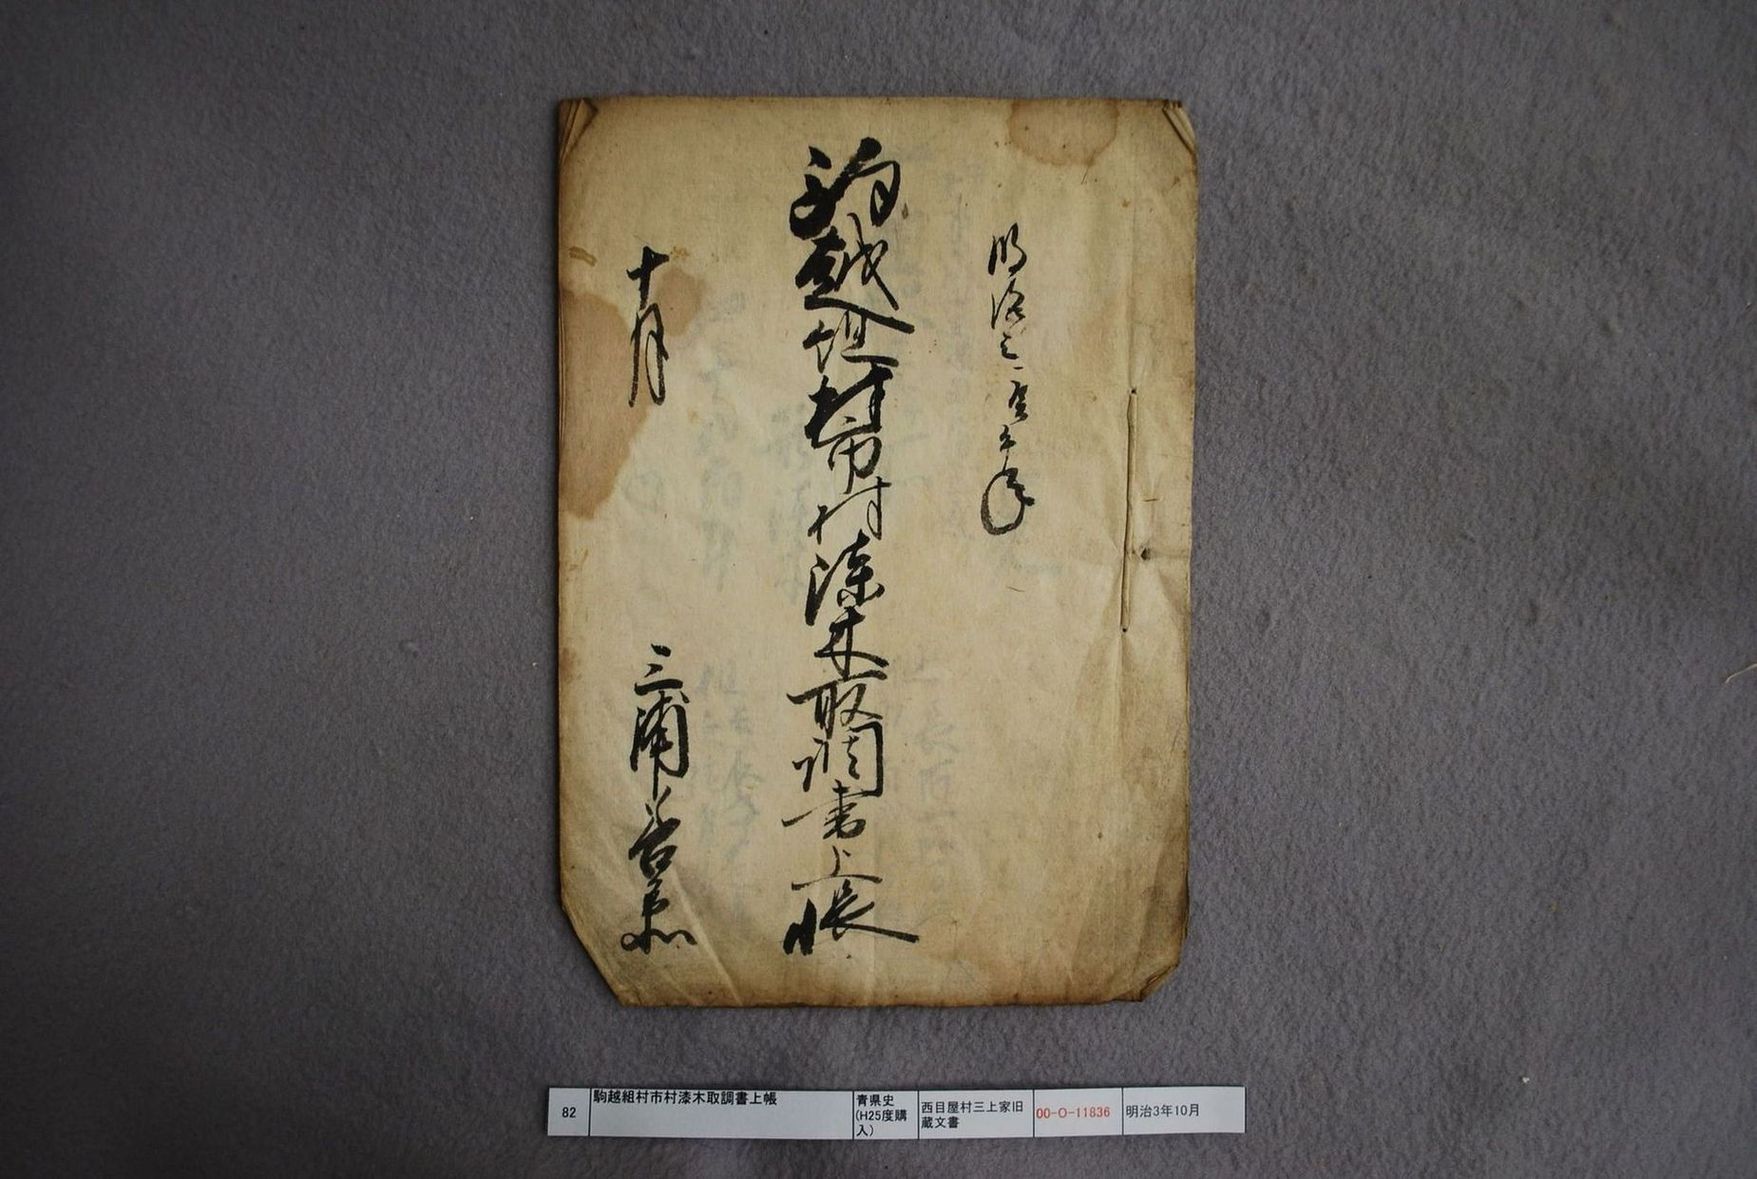 明治三庚午年
駒越組村市村漆木取調書上帳
十月
三浦善
82
駒越組村市村漆木取調書上帳
青県史
(H25度購
入)
西目屋村三上家旧
蔵文書
00-O-11836
明治3年10月